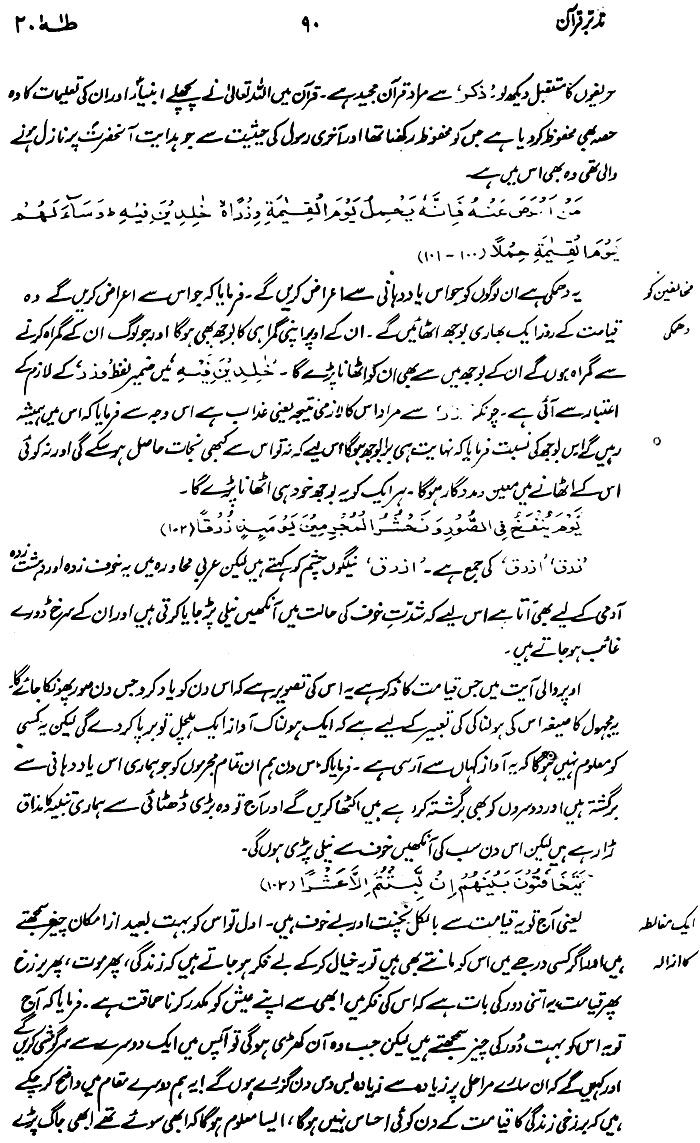 تدبر قرآن ۹۰ طٰهٰ ۲۰
حریفوں کا مستقبل دیکھ لو۔ ’ذکر‘ سے مراد قرآن مجید ہے۔ قرآن میں اللہ تعالیٰ نے پچھلے انبیاؑء اور ان کی تعلیمات کا وہ
حصہ بھی محفوظ کر دیا ہے جس کو محفوظ رکھنا تھا اور آخری رسول کی حیثیت سے جو ہدایت آنحضرتؐ پر نازل ہونے
والی تھی وہ بھی اس میں ہے۔
مَنْ اَعْرَضَ عَنْهُ فَاِنَّهٗ يَحْمِلُ يَوْمَ الْقِيٰمَةِ وِزْرًا ۙ خٰلِدِيْنَ فِيْهِ ؕ وَسَآءَ لَهُمْ
يَوْمَ الْقِيٰمَةِ حِمْلًا (۱۰۰ - ۱۰۱)
مخالفین کو یہ دھمکی ہے ان لوگوں کو جو اس یاد دہانی سے اعراض کریں گے۔ فرمایا کہ جو اس سے اعراض کریں گے وہ
دھمکی قیامت کے روز ایک بھاری بوجھ اٹھائیں گے۔ ان کے اوپر اپنی گمراہی کا بوجھ بھی ہوگا اور جو لوگ ان کے گمراہ کرنے
سے گمراہ ہوں گے ان کے بوجھ میں سے بھی ان کو اٹھانا پڑے گا۔ ’خٰلِدِيْنَ فِيْهِ‘ میں ضمیر لفظ ’وزر‘ کے لازم کے
اعتبار سے آئی ہے۔ چونکہ ’وزر‘ سے مراد اس کا لازمی نتیجہ یعنی عذاب ہے اس وجہ سے فرمایا کہ اس میں ہمیشہ
رہیں گے۔ اس بوجھ کی نسبت فرمایا کہ نہایت ہی برا بوجھ ہوگا اس لیے کہ نہ تو اس سے کبھی نجات حاصل ہو سکے گی اور نہ کوئی
اس کے اٹھانے میں معین و مددگار ہوگا۔ ہر ایک کو یہ بوجھ خود ہی اٹھانا پڑے گا۔
يَوْمَ يُنْفَخُ فِى الصُّوْرِ وَنَحْشُرُ الْمُجْرِمِيْنَ يَوْمَئِذٍ زُرْقًا (۱۰۲)
’زرق‘ ’ازرق‘ کی جمع ہے۔ ’ازرق‘ نیلگوں چشم کو کہتے ہیں لیکن عربی محاورہ میں یہ خوف زدہ اور دہشت زدہ
آدمی کے لیے بھی آتا ہے اس لیے کہ شدتِ خوف کی حالت میں آنکھیں نیلی پڑ جایا کرتی ہیں اور ان کے سرخ ڈورے
غائب ہو جاتے ہیں۔
اوپر والی آیت میں جس قیامت کا ذکر ہے یہ اس کی تصویر ہے کہ اس دن کو یاد کرو جس دن صور پھونکا جائے گا۔
یہ مجہول کا صیغہ اس کی ہولناکی کی تعبیر کے لیے ہے کہ ایک ہولناک آواز ایک ہلچل تو برپا کر دے گی لیکن یہ کسی
کو معلوم نہیں ہوگا کہ یہ آواز کہاں سے آ رہی ہے۔ فرمایا کہ اس دن ہم ان تمام مجرموں کو جو ہماری اس یاد دہانی سے
برگشتہ ہیں اور دوسروں کو بھی برگشتہ کر رہے ہیں اکٹھا کریں گے اور آج تو وہ بڑی ڈھٹائی سے ہماری تنبیہ کا مذاق
اڑا رہے ہیں لیکن اس دن سب کی آنکھیں خوف سے نیلی پڑی ہوں گی۔
يَتَخَافَتُوْنَ بَيْنَهُمْ اِنْ لَّبِثْتُمْ اِلَّا عَشْرًا (۱۰۳)
ایک مغالطہ یعنی آج تو یہ قیامت سے بالکل نچنت اور بے خوف ہیں۔ اول تو اس کو بہت بعید از امکان چیز سمجھتے
کا ازالہ ہیں اور اگر کسی درجے میں اس کو مانتے بھی ہیں تو یہ خیال کر کے بے فکر ہو جاتے ہیں کہ زندگی، پھر موت، پھر برزخ
پھر قیامت، یہ اتنی دور کی بات ہے کہ اس کی فکر میں ابھی سے اپنے عیش کو مکدر کرنا حماقت ہے۔ فرمایا کہ آج
تو یہ اس کو بہت دُور کی چیز سمجھتے ہیں لیکن جب وہ آن کھڑی ہوگی تو آپس میں ایک دوسرے سے سرگوشی کریں گے
اور کہیں گے کہ ان سارے مراحل پر زیادہ سے زیادہ بس دس دن گزرے ہوں گے! یہ ہم دوسرے مقام میں واضح کر چکے
ہیں کہ برزخی زندگی کا قیامت کے دن کوئی احساس نہیں ہوگا، ایسا معلوم ہوگا کہ ابھی سوئے تھے ابھی جاگ پڑے